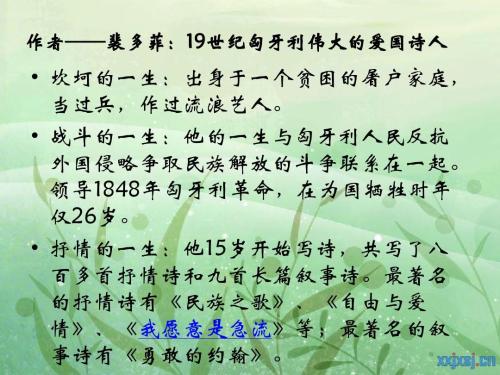 作者——裴多菲：19世纪匈牙利伟大的爱国诗人
• 坎坷的一生：出身于一个贫困的屠户家庭，
当过兵，作过流浪艺人。
• 战斗的一生：他的一生与匈牙利人民反抗
外国侵略争取民族解放的斗争联系在一起。
领导1848年匈牙利革命，在为国牺牲时年
仅26岁。
• 抒情的一生：他15岁开始写诗，共写了八
百多首抒情诗和九首长篇叙事诗。最著名
的抒情诗有《民族之歌》、《自由与爱
情》、《我愿意是急流》等；最著名的叙
事诗有《勇敢的约翰》。